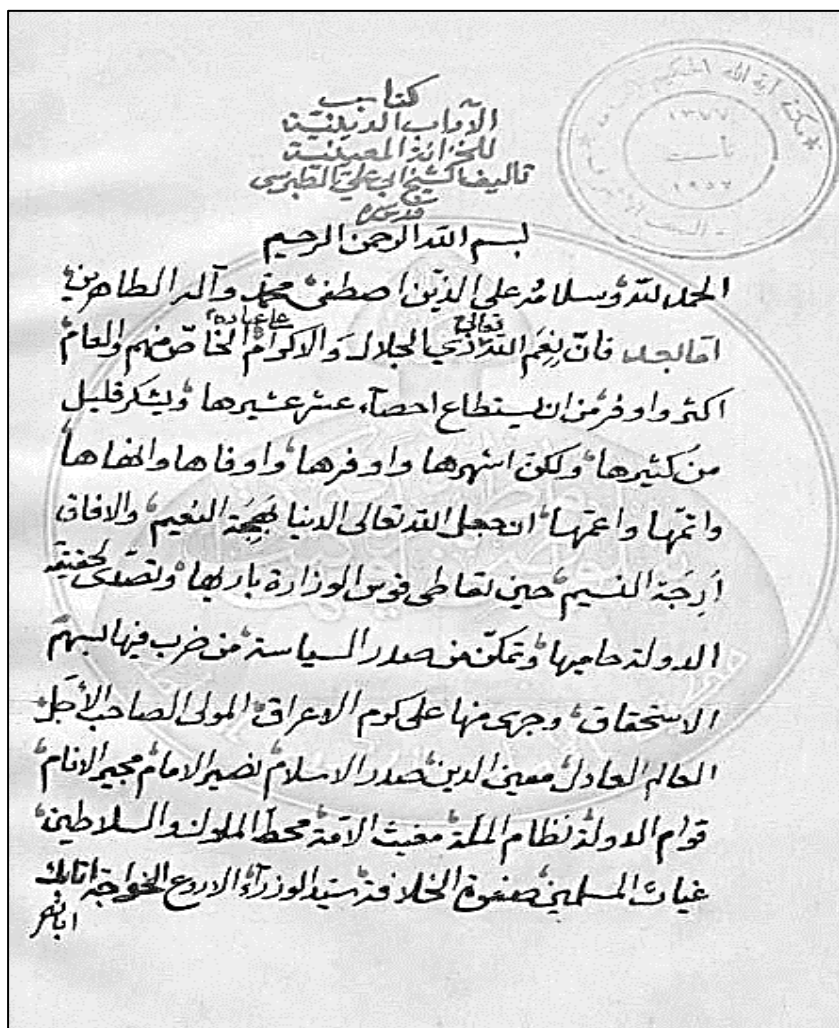 كتاب
الآداب الدينية
للخزانة المعينية
تاليف الشيخ ابي علي الطبرسي
قدس سره
بسم الله الرحمن الرحيم
الحمد لله وسلامه على الذين اصطفى محمد وآله الطاهرين
اما بعد فان نعم الله تعالى ذي الجلال والاكرام على عباده الخاص منهم والعام
اكثر واوفر من ان يستطاع احصاء عشر عشيرها ويشكر قليل
من كثيرها ولكن اشهرها واوفرها واوفاها واضفاها
واتمها واعمها ان جعل الله تعالى الدنيا بهجة النعيم والافاق
ارجة النسيم حين تعاطى قوس الوزارة باريها وتصدى لحقيقة
الدولة حاميها وتمكن من صدر السياسة من ضرب فيها بسهم
الاستحقاق وجرى منها على كرم الاعراق المولى الصاحب الأجل
العالم العادل معين الدين صدر الاسلام نصير الامام مجير الانام
قوام الدولة نظام الملة مغيث الامة محط الملوك والسلاطين
غياث المسلمين صفوة الخلافة سيد الوزرآء الاروع الخواجة اتابك
ابا نصر
مكتبة آية الله الحكيم العامة
١٣٧٧
تأسست
١٩٥٧
النجف الاشرف